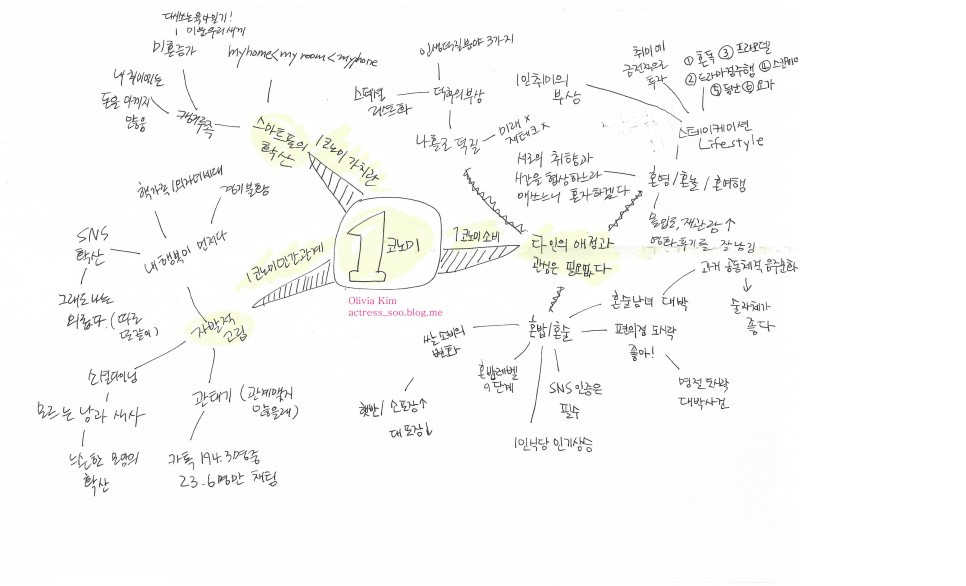 1
코노미
Olivia Kim
actress_soo.blog.me
1코노미 가치관
스마트폰의
확산
myhome<my room<myphone
캥거루족
미혼증가
다시쓰는 육아일기!
미운우리새끼
내 취미에는
돈을 아끼지
않음
1코노미 소비
다인의 애정과
관심은 필요없다
나홀로 덕질
미래 x
재테크 x
덕후의 부상
인생덕질분야 3가지
스페셜
리스트화
혼영/혼놀/혼여행
서로의 취향과
시간을 협상하느라
애쓰느니 혼자하겠다
몰입도, 재관람↑
영화후기를 잘 남김
스테이케이션
Lifestyle
1인취미의
부상
취미에
금전적으로
투자
① 혼독 ③ 프라모델
② 드라마정주행 ④ 스칸디아
⑤ 퀼트 ⑥ 요가
혼밥/혼술
혼술남녀 대박
과거 공동체적 음주문화
술자체가
좋다
편의점 도시락
좋아!
명절 도시락
대박사건
SNS 인증은
필수
1인식당 인기상승
혼밥레벨
9단계
쌀 소비의
변화
햇반/소포장↑
대포장↓
1코노미 인간관계
자발적
고립
내 행복이 먼저다
핵가족/외자녀세대
경기불황
SNS
확산
그래도 나는
외롭다. (따로
또같이)
소셜다이닝
모르는 남과 식사
느슨한 모임의
확산
관태기 (관계맺지
않을래)
카톡 194.3명중
23.6명만 채팅